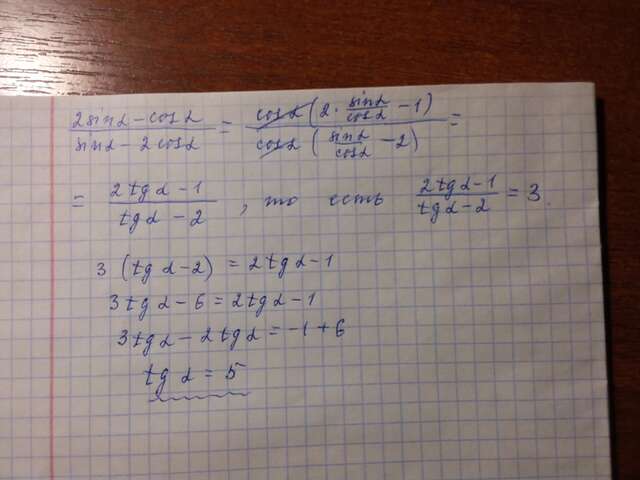 (2sinα - cosα)/(sinα - 2cosα) = (cosα (2 · sinα/cosα - 1))/(cosα (sinα/cosα - 2)) =
= (2tgα - 1)/(tgα - 2) , то есть (2tgα - 1)/(tgα - 2) = 3.
3 (tgα - 2) = 2tgα - 1
3tgα - 6 = 2tgα - 1
3tgα - 2tgα = -1 + 6
tgα = 5